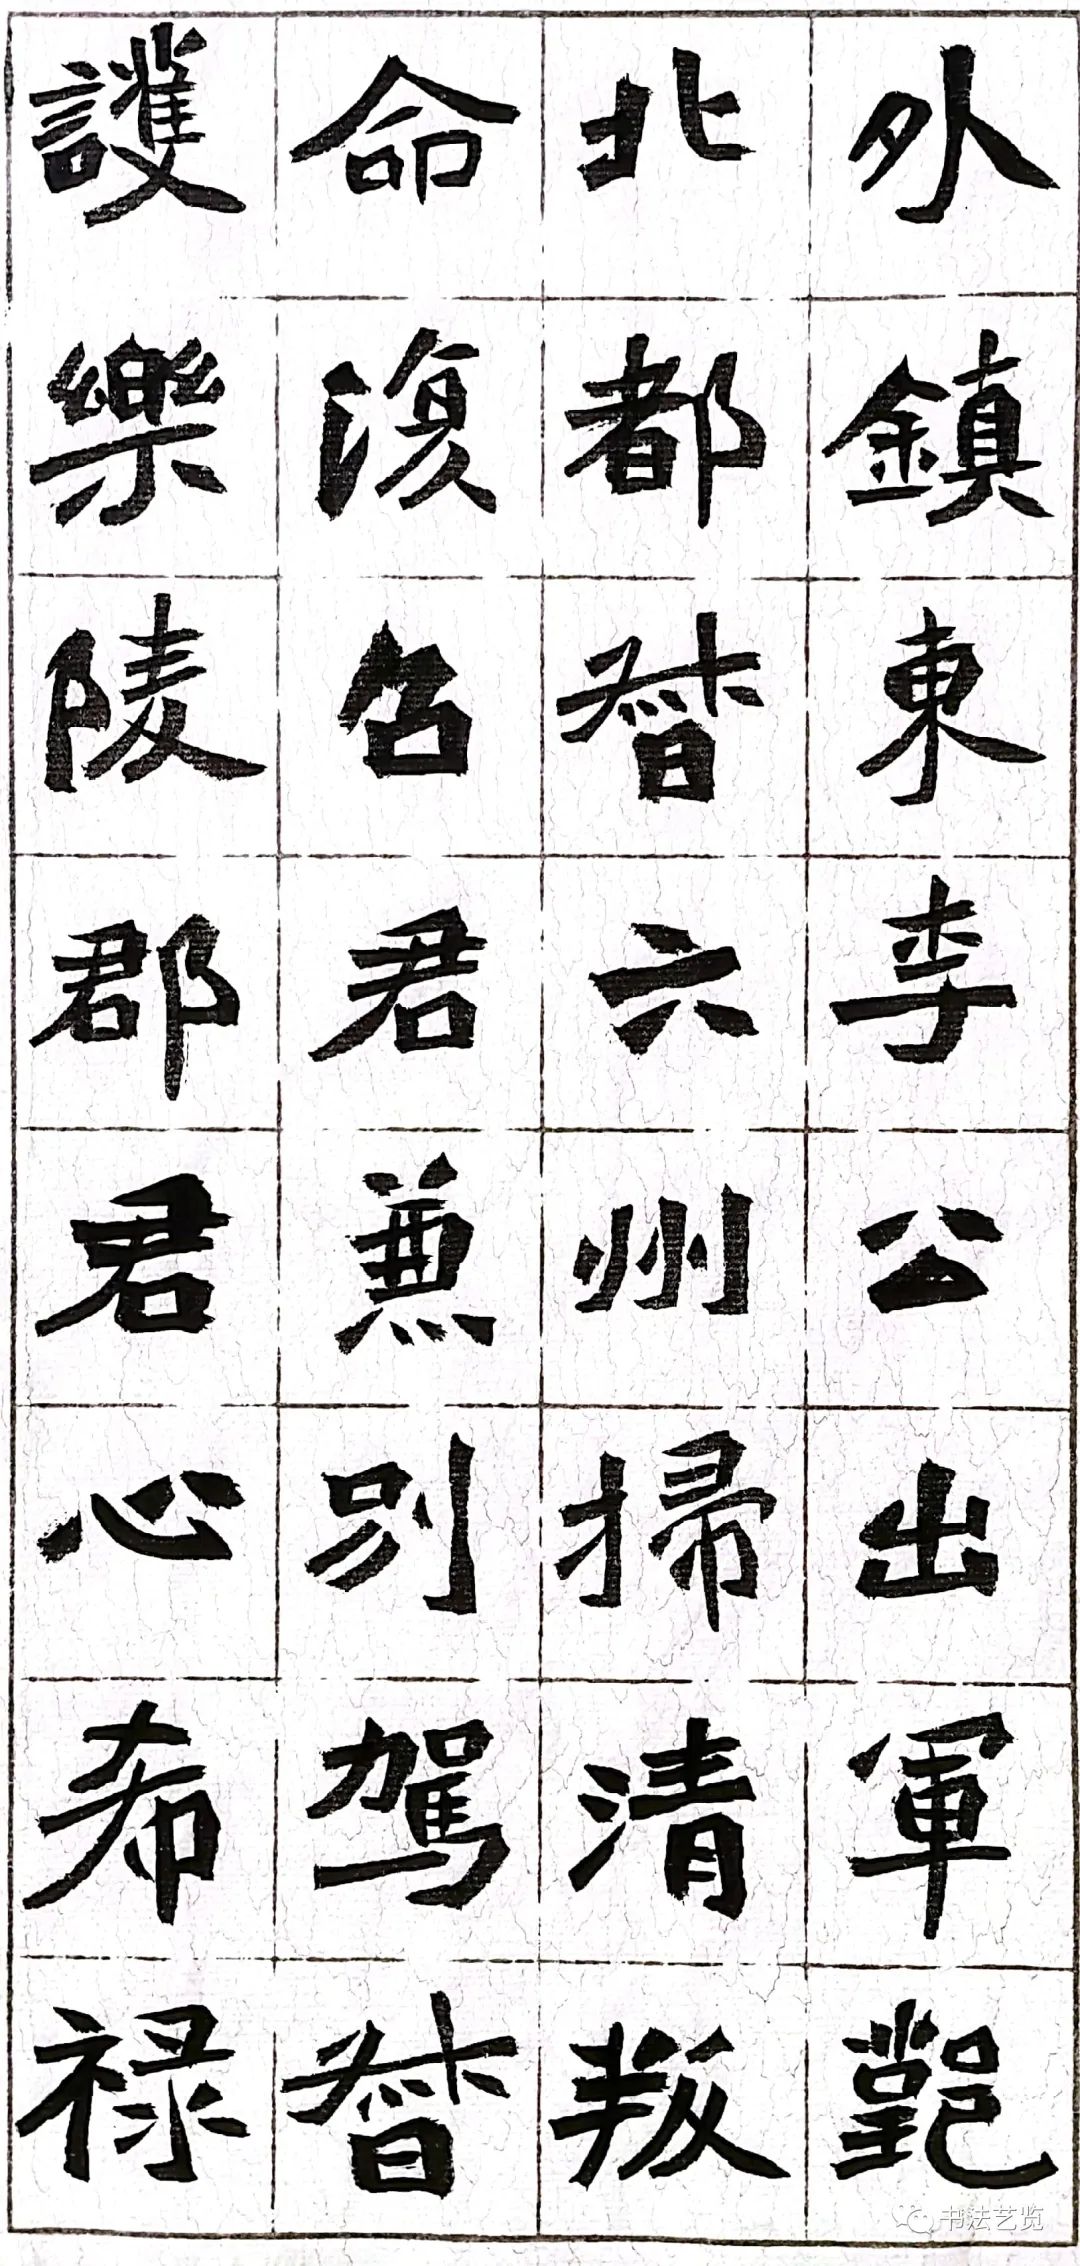 外鎮東李公出軍鄴
北都督六州掃清叛
命復召君兼別駕督
護樂陵郡君心希禄
书法艺览